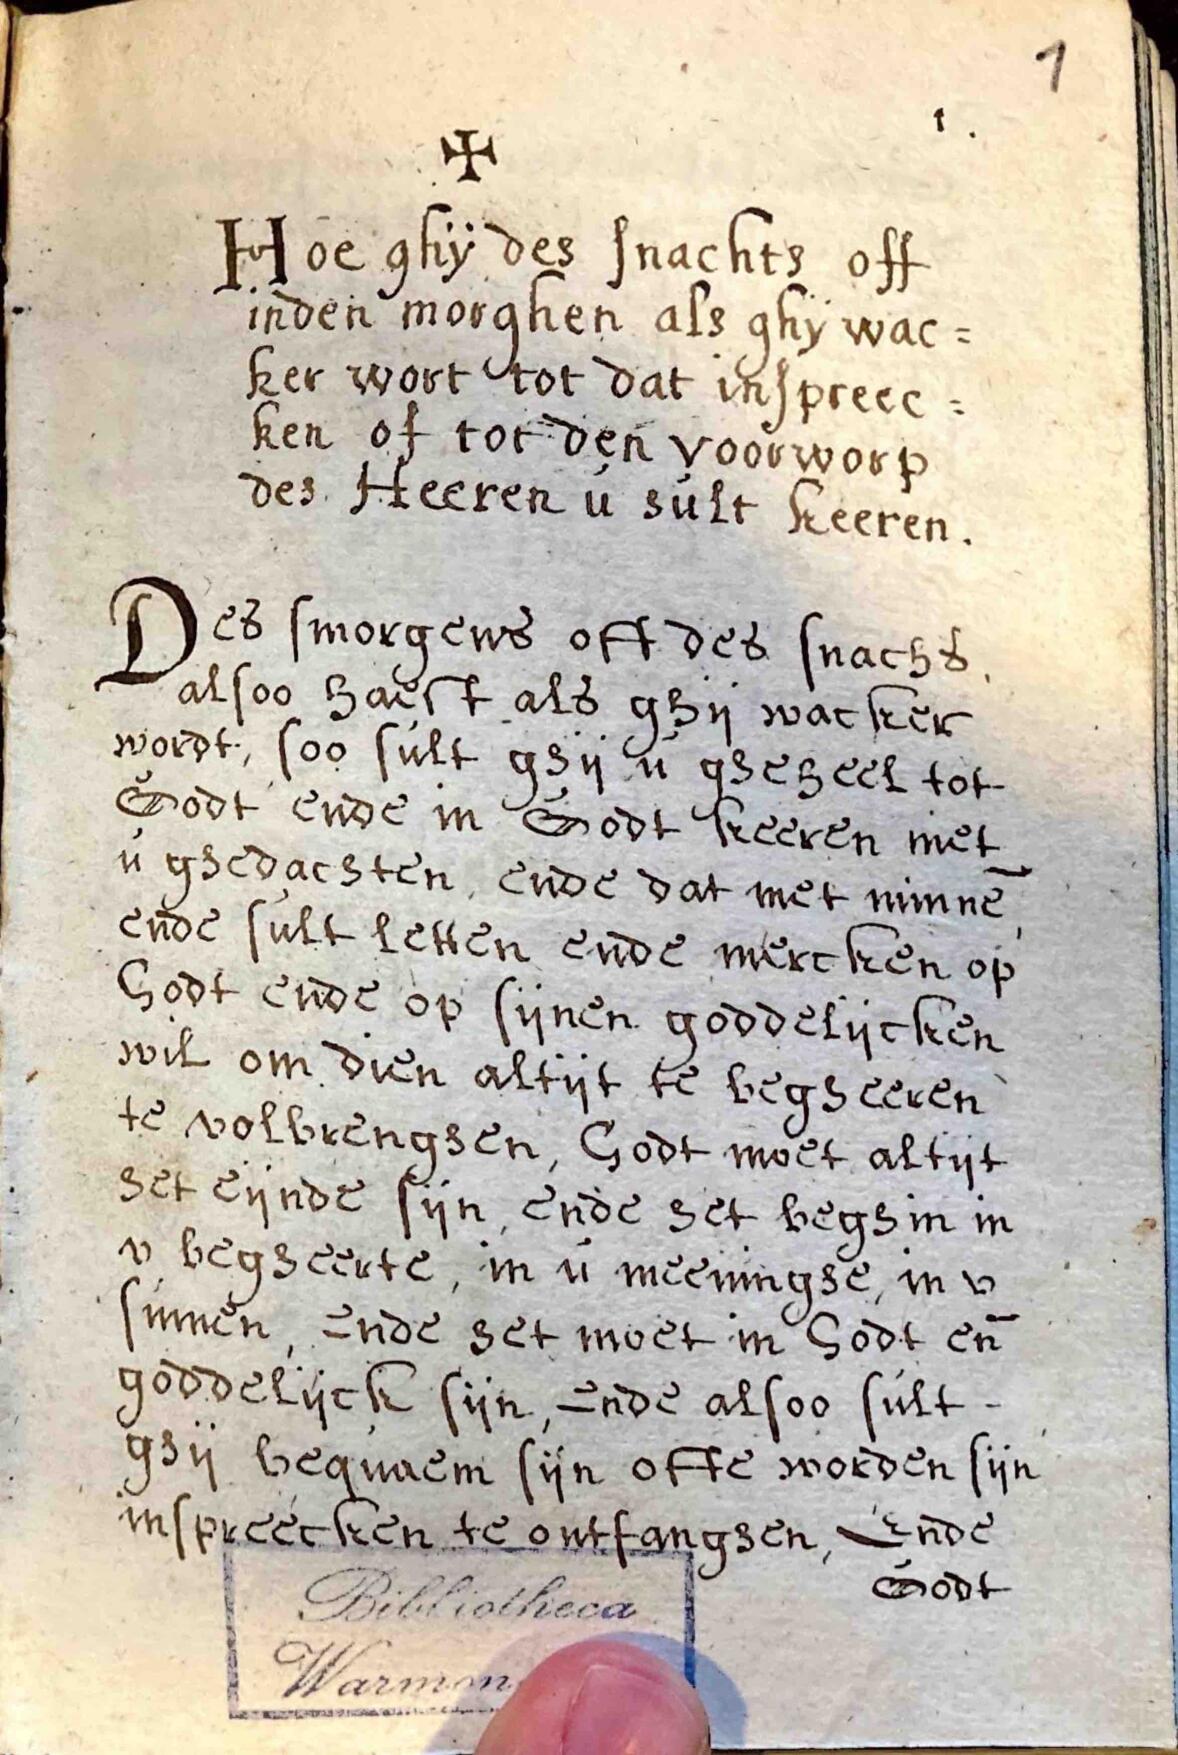 1
1.
✠
Hoe ghÿ des snachts off
inden morghen als ghÿ wac=
ker wort tot dat inspreec=
ken of tot den voorworp
des Heeren ú súlt keeren.
Des smorgens oft des snachs
alsoo haest als ghij wacker
wordt, soo súlt ghij ú gheheel tot
Godt ende in Godt keeren met
ú ghedachten, ende dat met minnē,
ende súlt letten ende mercken op
Godt ende op sijnen goddelijcken
wil om dien altijt te begheeren
te volbrenghen, Godt moet altijt
het eijnde sijn, ende het beghin in
v begheerte, in ú meeninghe, in v
sinnen, Ende het moet in Godt en̄
goddelijck sijn, Ende alsoo súlt
ghij bequaem sijn ofte worden sijn
inspreecken te ontfanghen, Ende
Godt
Bibliotheca
Warmon